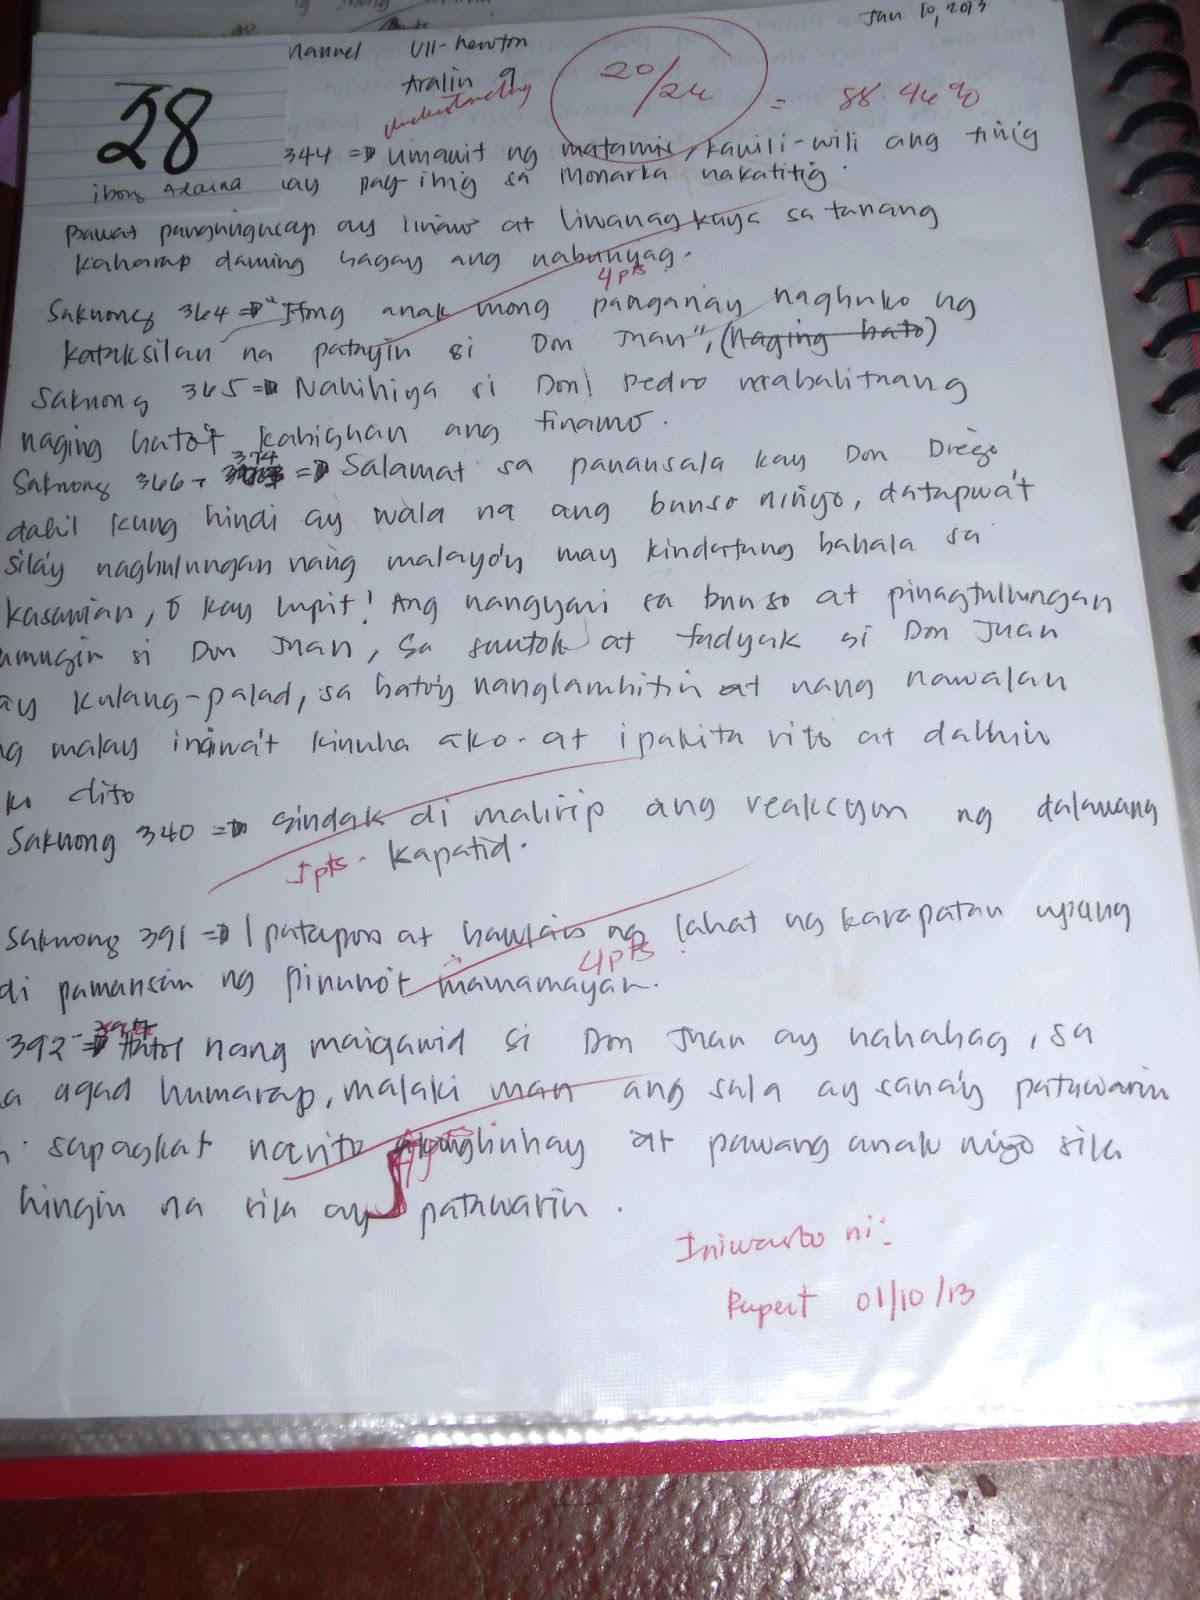 Jan 10, 2013
VII-newton
Aralin 9
understanding
20/24 = 88.46%
28
ibong Adarna
344 => umawit ng matamis, kawili-wili ang tinig
ay pag-ibig sa Monarka nakatitig.
Bawat pangungusap ay linaw at liwanag kaya sa tanang
kaharap daming bagay ang nabunyag.
4pts
Saknong 364 => "Itong anak mong panganay nagbuko ng
kataksilan na patayin si Don Juan", (naging bato)
Saknong 365 => Nahihiya si Don Pedro
naging bato't kabighan ang tinamo.
Saknong 366 - 374 => Salamat sa panansala kay Don Diego
dahil kung hindi ay wala na ang bunso ninyo, datapwa't
sila'y nagbulungan nang malayo'y may bahala sa
kasawian, O kay lupit! Ang nangyari sa bunso at pinagtulungan
si Don Juan, sa suntok at tadyak si Don Juan
ay kulang-palad, sa bato'y nanglambitin at nang nawalan
ng malay iniwa't kinuha ako. at ipakita rito at dalhin
ko dito
Saknong 340 => Sindak di malirip ang reaksyon ng dalawang
kapatid.
5pts.
Saknong 391 => Ipatapon at bawian ng lahat ng karapatan upang
di pamansin ng pinuno't mamamayan.
4pts
392 - => Hatol nang maigawid si Don Juan ay nahabag, sa
agad humarap, malaki man ang sala ay sana'y patawarin
sapagkat narito at pawang anak niyo sila
hingin na sila ay patawarin.
Iniwasto ni:
Rupert 01/10/13